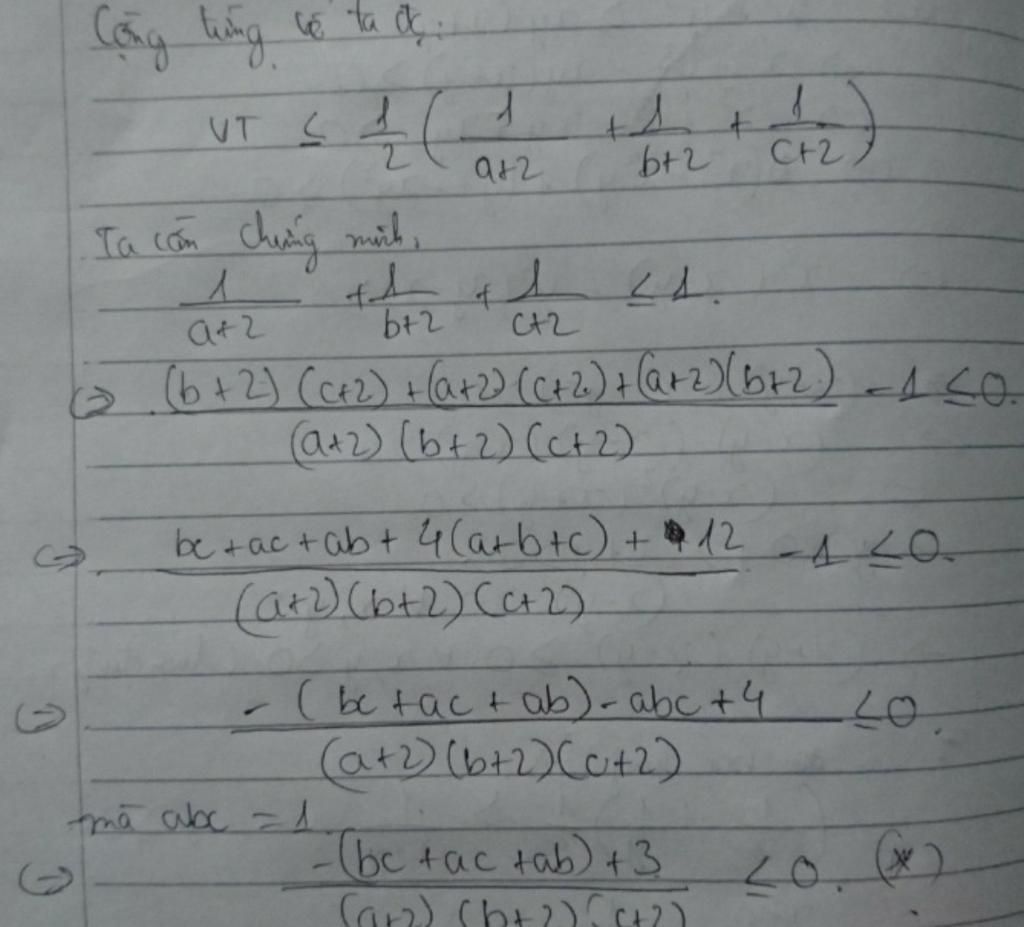 Cộng từng vế ta đc:
VT ≤ 1/2 ( 1/(a+2) + 1/(b+2) + 1/(c+2) )
Ta cần chứng minh,
1/(a+2) + 1/(b+2) + 1/(c+2) ≤ 1.
⇔ ((b+2)(c+2)+(a+2)(c+2)+(a+2)(b+2))/((a+2)(b+2)(c+2)) - 1 ≤ 0.
⇔ (bc+ac+ab+4(a+b+c)+12)/((a+2)(b+2)(c+2)) - 1 ≤ 0.
⇔ (-(bc+ac+ab)-abc+4)/((a+2)(b+2)(c+2)) ≤ 0.
mà abc = 1
⇔ (-(bc+ac+ab)+3)/((a+2)(b+2)(c+2)) ≤ 0. (*)